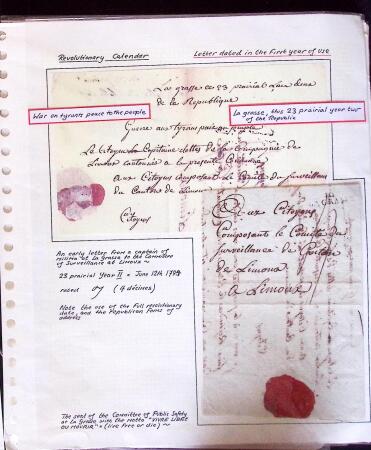 Revolutionary Calender
Letter dated in the first year of use
La grasse ce 23 prairial
de la Republique
War on tyrants peace to the people
La grasse, this 23 prairial year two
of the Republic
Guerre aux tyrans paix
Le Citoyen Capitaine
Limoux cantonnée a la presente
aux Citoyens composant le Comité de surveillance
du Canton de Limoux
Citoyens
An early letter from a captain of
militia at La Grasse to the Committee
of Surveillance at Limoux ~
23 prairial Year II = June 12th 1794
rated (4 décimes)
Note the use of the full revolutionary
date, and the Republican forms of
address
Aux Citoyens
Composants le Comité de
Surveillance de
de Limoux
a Limoux
The seal of the Committee of Public Safety
at La Grasse with the motto "VIVRE LIBRE
OU MOURIR" = (live free or die) ~